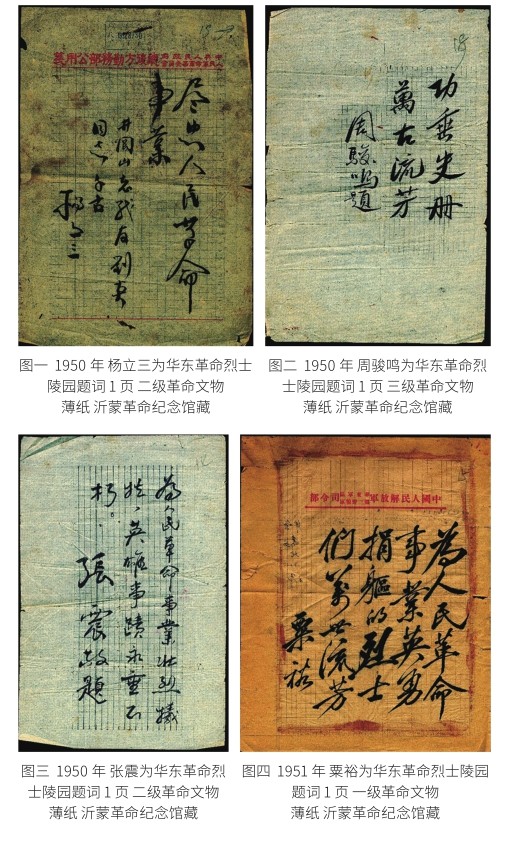 總後方勤務部公用箋
尽忠人民革命
事業
井岡山老战友
同志千古
杨立三
图一 1950 年 杨立三为华东革命烈士
陵园题词 1 页 二级革命文物
薄纸 沂蒙革命纪念馆藏
功垂史册
萬古流芳
周駿鳴題
图二 1950 年 周骏鸣为华东革命烈
士陵园题词 1 页 三级革命文物
薄纸 沂蒙革命纪念馆藏
為人民革命事業壯烈犧
牲，英雄事蹟永垂不
朽。
張震敬題
图三 1950 年 张震为华东革命烈
士陵园题词 1 页 二级革命文物
薄纸 沂蒙革命纪念馆藏
中國人民解放軍司令部
為人民革命
事業英勇
捐軀的烈士
們萬世流芳
粟裕
图四 1951 年 粟裕为华东革命烈士陵园
题词 1 页 一级革命文物
薄纸 沂蒙革命纪念馆藏